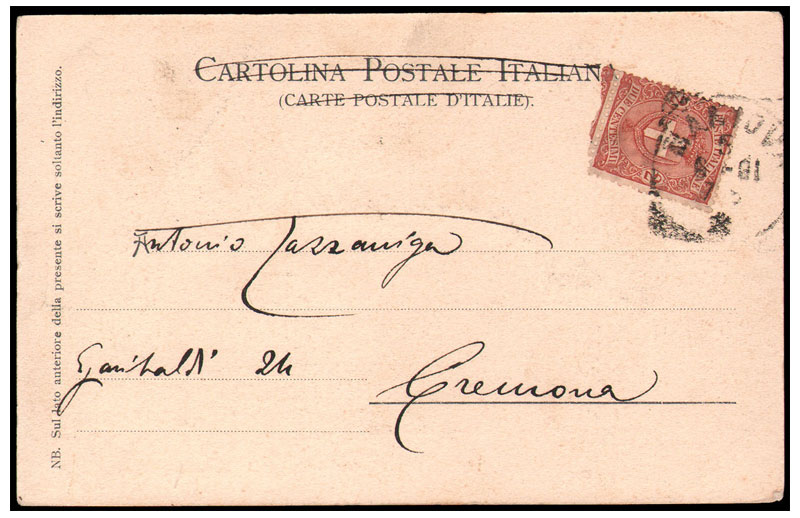 CARTOLINA POSTALE ITALIANA
(CARTE POSTALE D'ITALIE).
DUE CENTESIMI
Antonio Lazzaniga
Garibaldi 24
Cremona
NB. Sul lato anteriore della presente si scrive soltanto l'indirizzo.